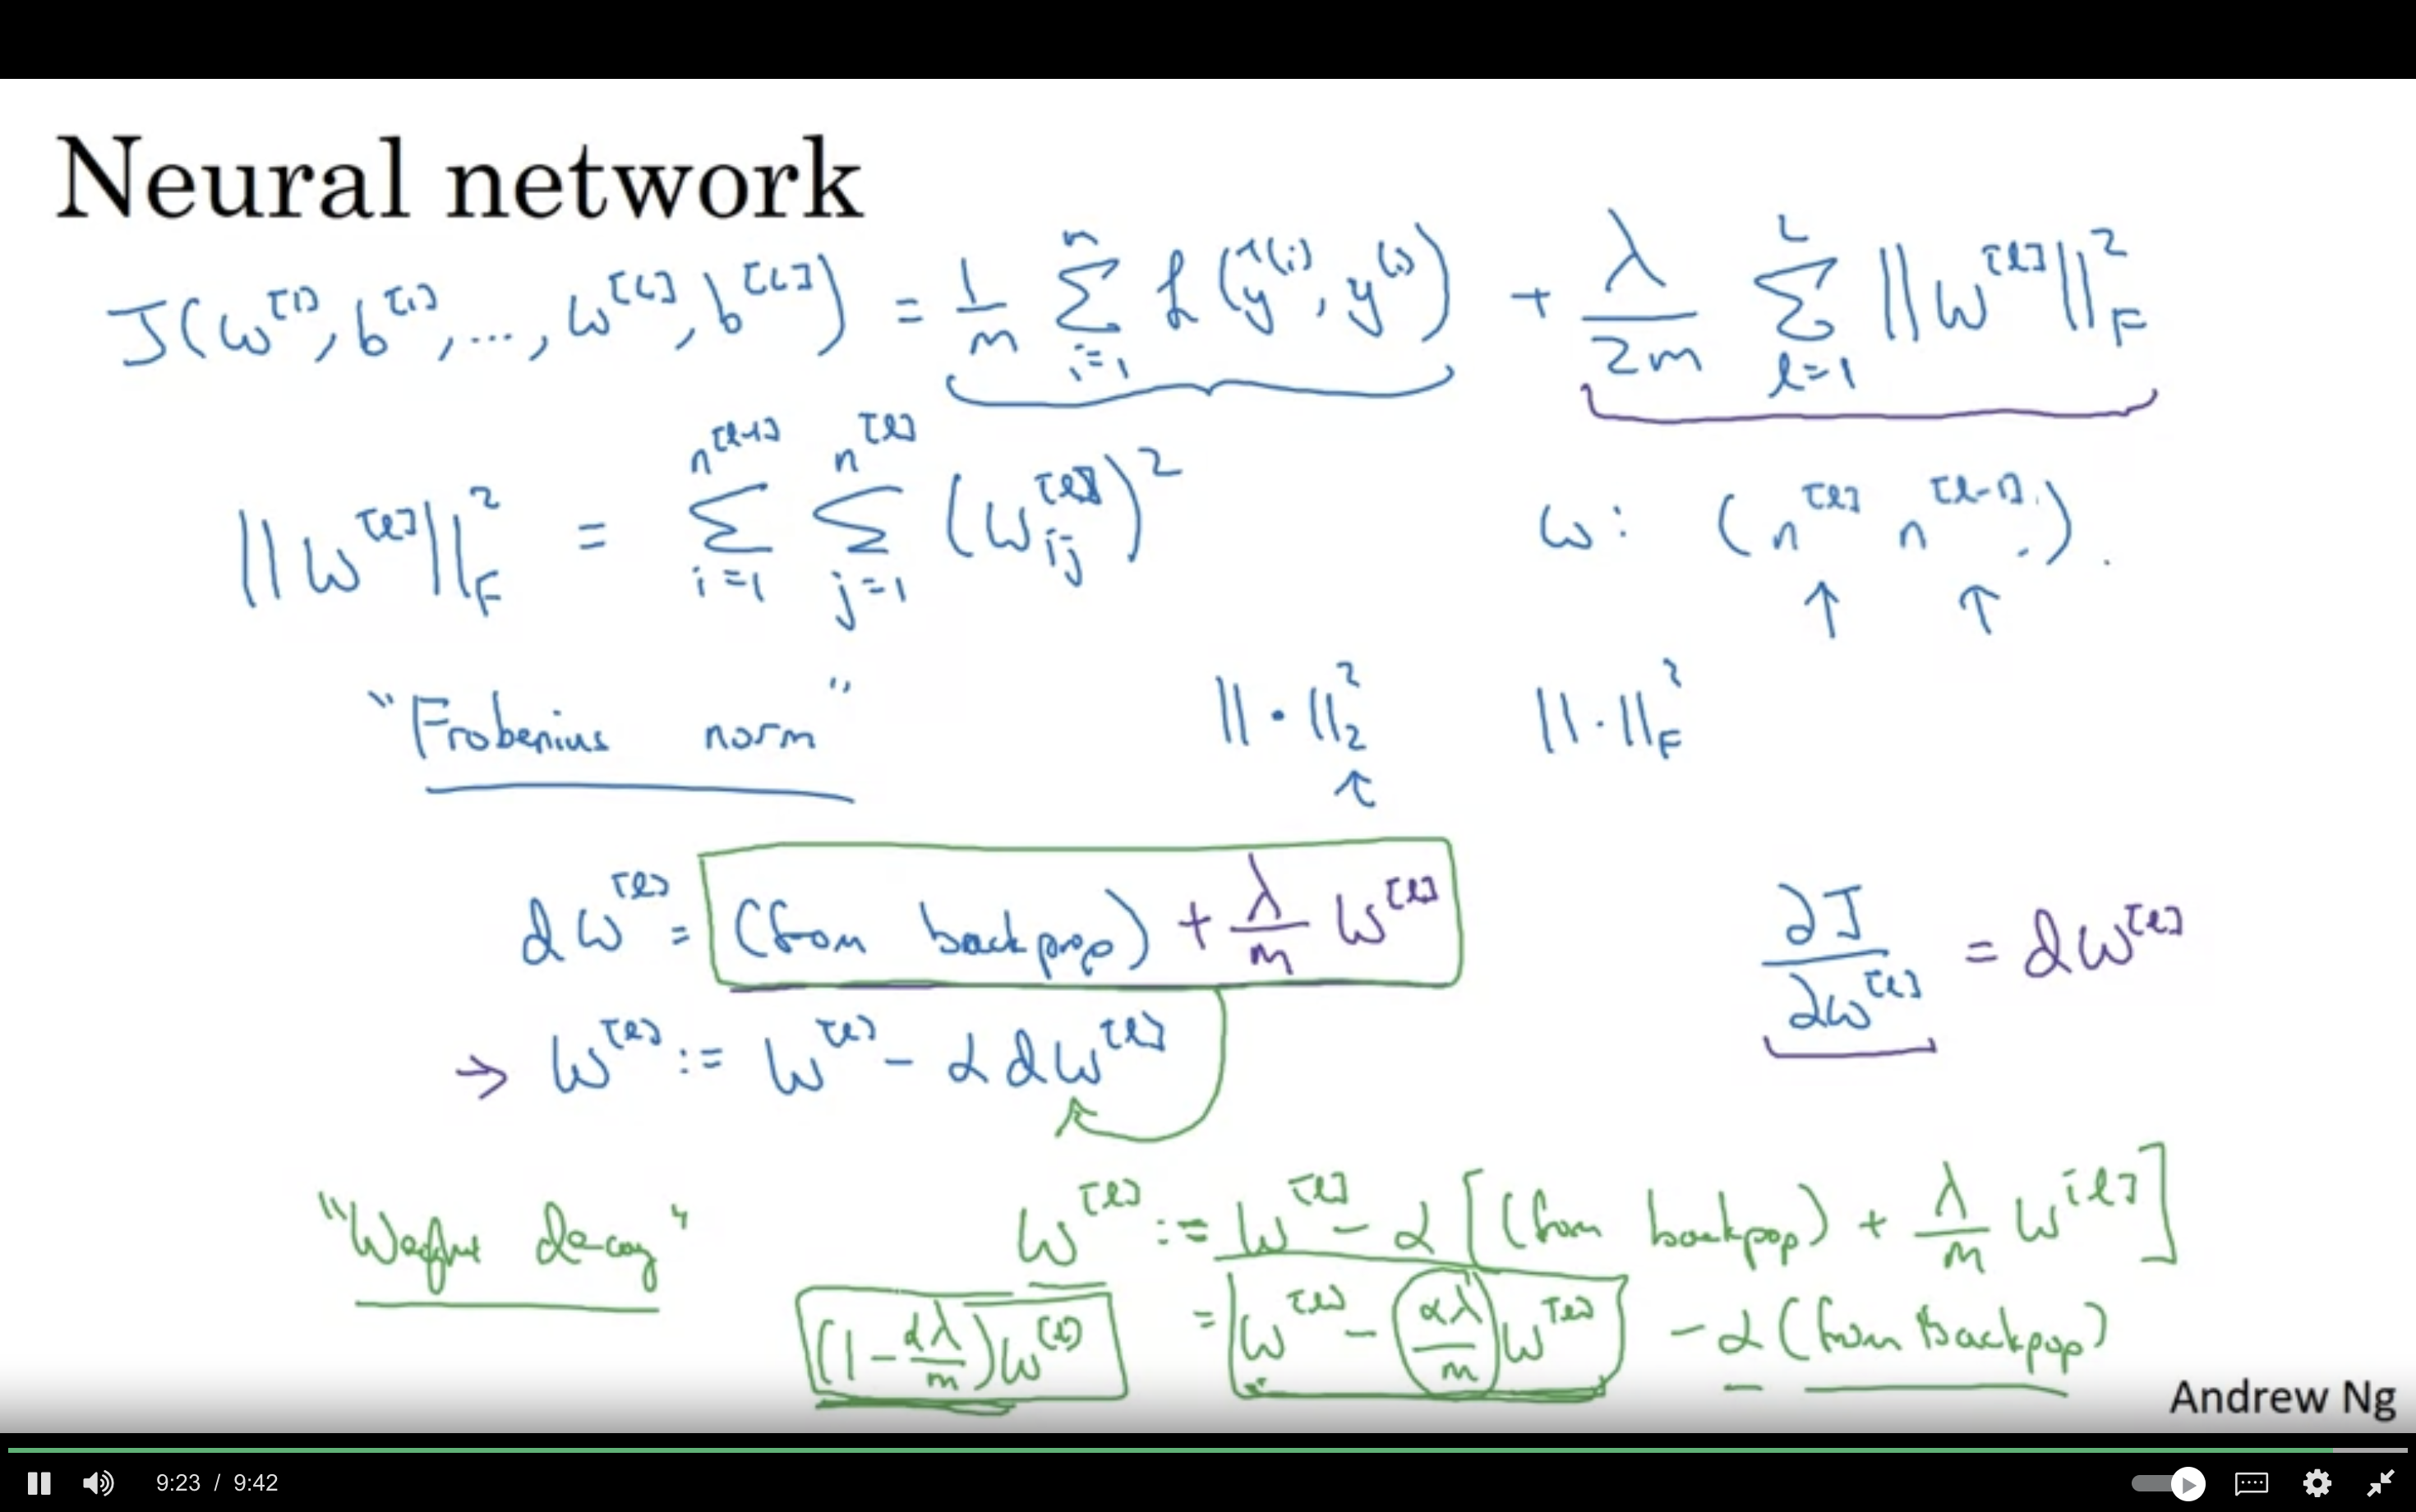 Neural network
J(w^[1], b^[1], ..., w^[L], b^[L]) = 1/m Σ_{i=1}^{m} L(ŷ^(i), y^(i)) + λ/2m Σ_{l=1}^{L} ||w^[l]||_F^2
||w^[l]||_F^2 = Σ_{i=1}^{n^[l-1]} Σ_{j=1}^{n^[l]} (w_ij^[l])^2    w: (n^[l] n^[l-1]).
↑ ↑
"Frobenius norm"    ||·||_2^2    ||·||_F^2
↑
dw^[l] = (from backprop) + λ/m w^[l]    ∂J/∂w^[l] = dw^[l]
→ w^[l] := w^[l] - α dw^[l]
"Weight decay"    w^[l] := w^[l] - α[(from backpop) + λ/m w^[l]]
(1 - αλ/m) w^[l]    = w^[l] - αλ/m w^[l] - α(from backpop)
Andrew Ng
9:23 / 9:42